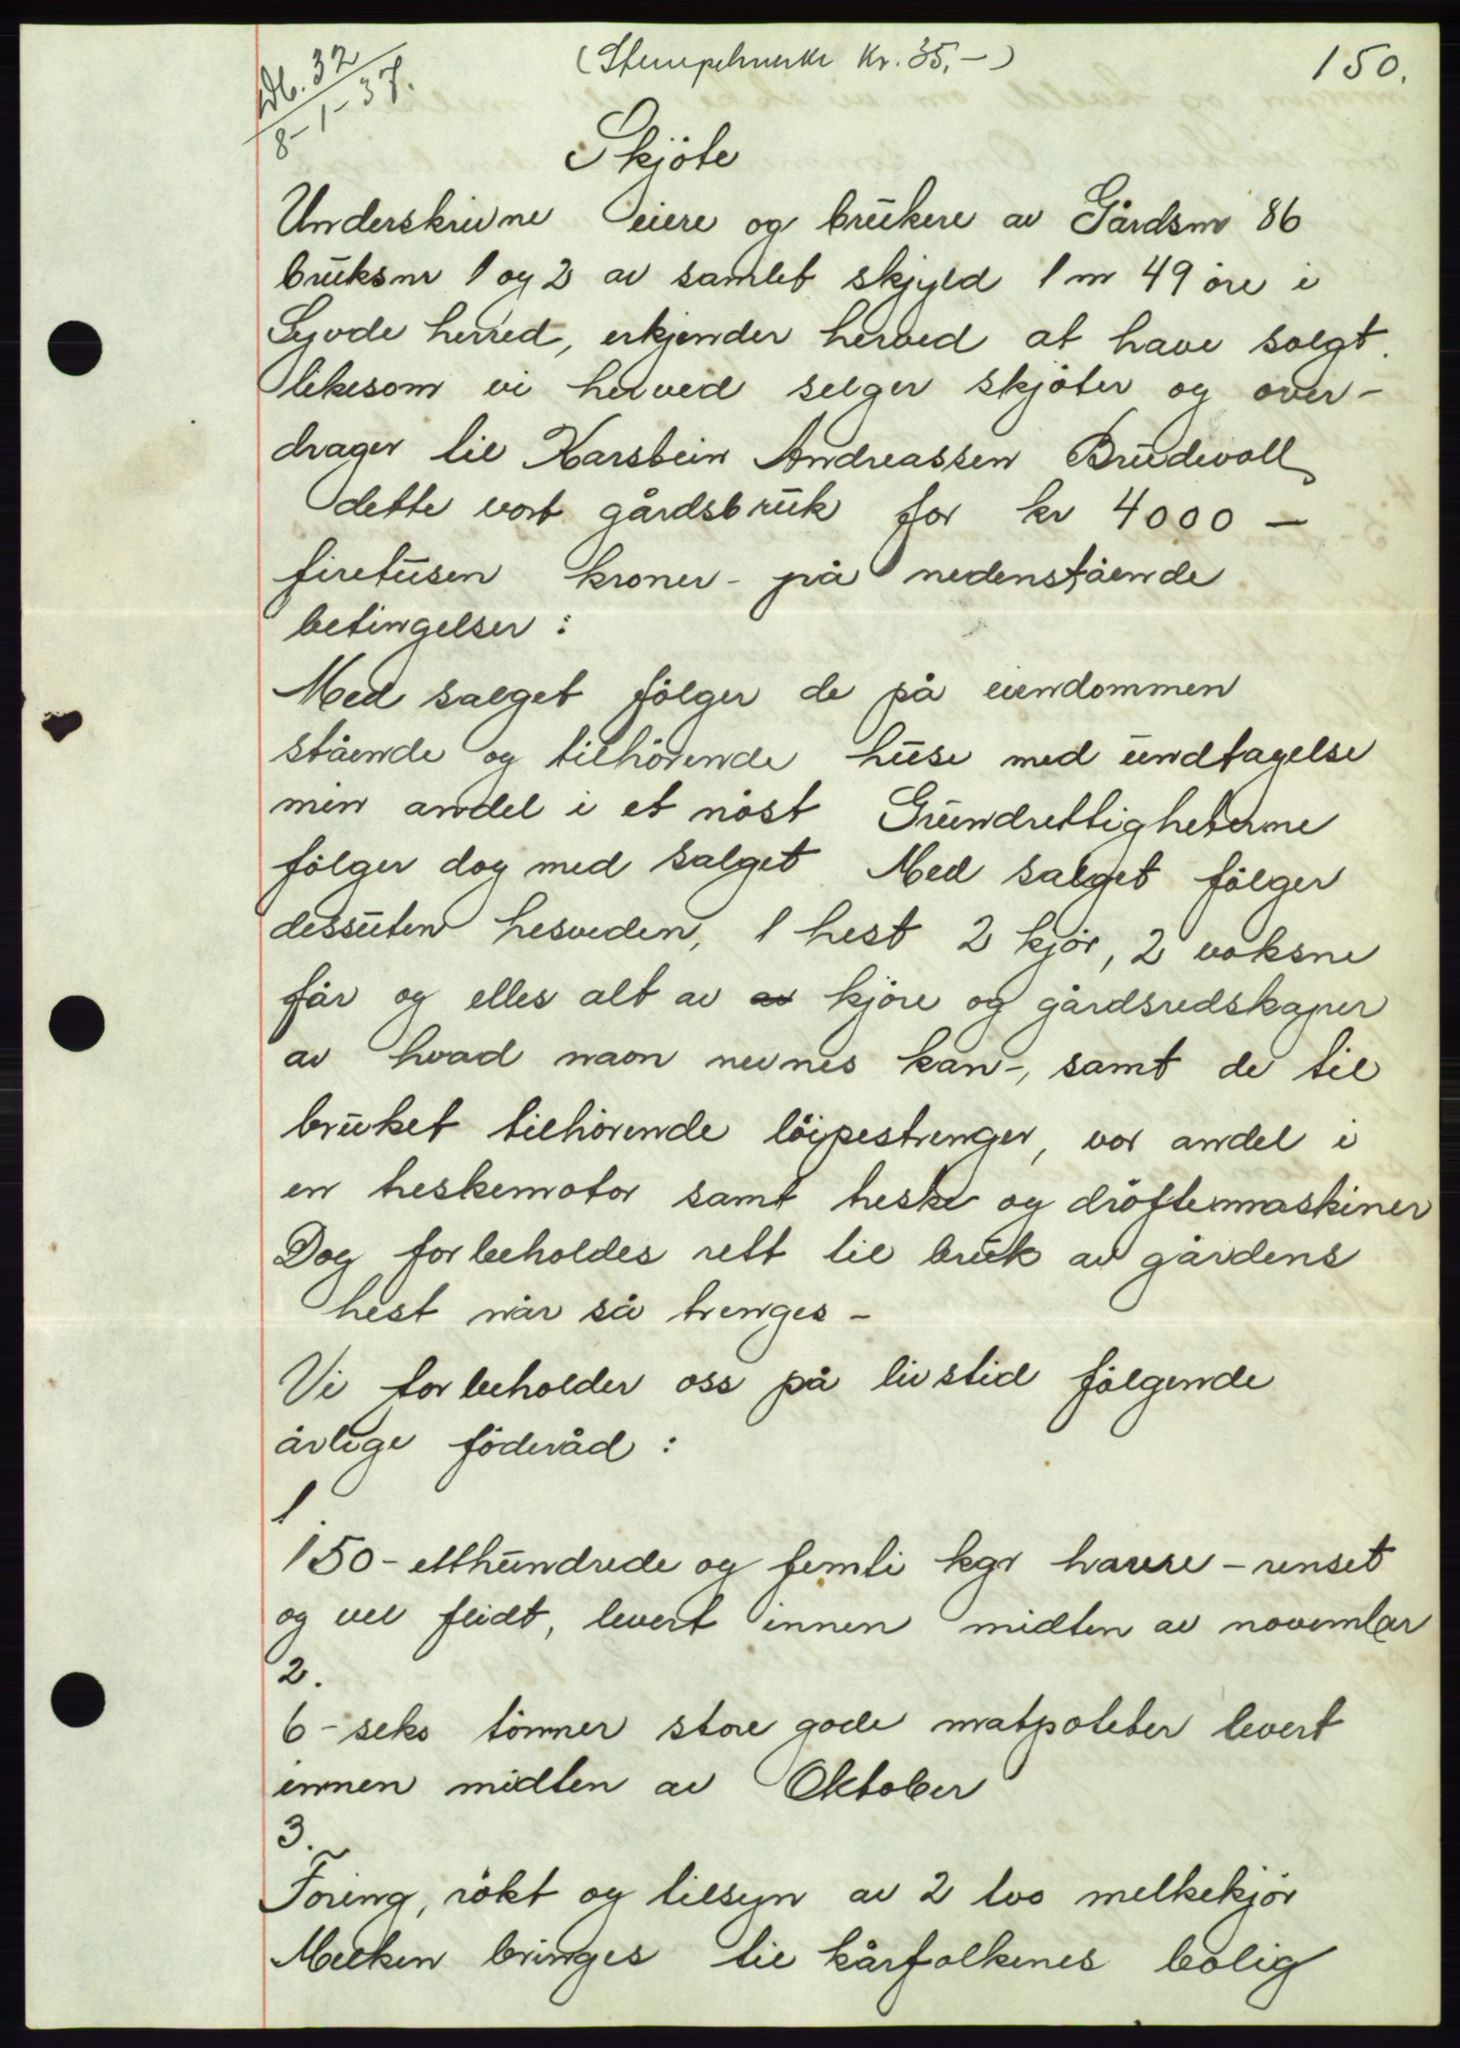 Db. 32
8-1-37.
(Stempelmerke Kr. 35,-)
150.
Skjöte
Underskrivne eiere og brukere av Gårdsnr 86
bruksnr 1 og 2 av samlet skjyld 1 m 49 öre i
Syvde herred, erkjender herved at have solgt
likesom vi herved selger skjöter og over-
drager til Karstein Andreassen Brudevoll
dette vort gårdsbruk for kr 4000 —
firetusen kroner - på nedenstående
betingelser:
Med salget fölger de på eiendommen
stående og tilhörende huse med undtagelse
min andel i et nöst Grundrettigheterne
fölger dog med salget Med salget fölger
dessuten hesveden, 1 hest 2 kjör, 2 voksne
får og elles alt av av kjöre og gårdsredskaper
av hvad navn nevnes kan-, samt de til
bruket tilhörende löipestrenger, vor andel i
en treskemotor samt treske og dröftemaskiner
Dog forbeholdes rett til bruk av gårdens
hest når så trenges -
Vi forbeholder oss på livstid fölgende
årlige föderåd:
1.
150 - etthundrede og femti kgr havre - renset
og vel flidt, levert innen midten av november
2.
6 - seks tönner store gode matpoteter levert
innen midten av Oktober
3.
Foring, rökt og tilsyn av 2 tvo melkekjör
Melken bringes til kårfolkenes bolig